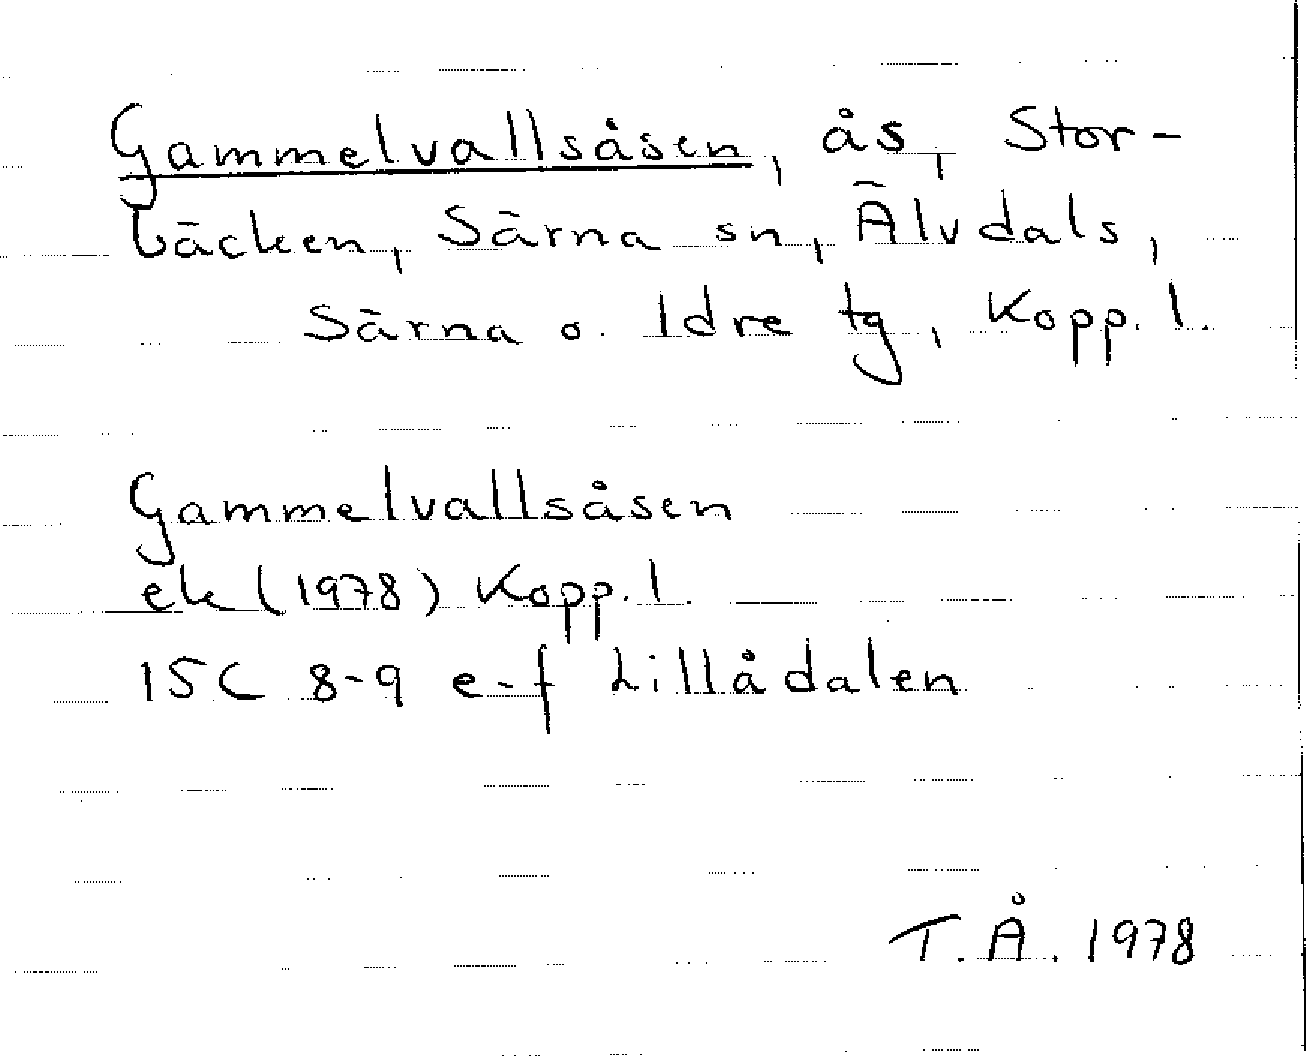 Gammelvallsåsen, ås, Stor-
bäcken, Särna sn, Älvdals,
Särna o. Idre tg, Kopp. l.
Gammelvallsåsen
ek (1978) Kopp. l.
15C 8-9 e-f Lillådalen
T.Å. 1978